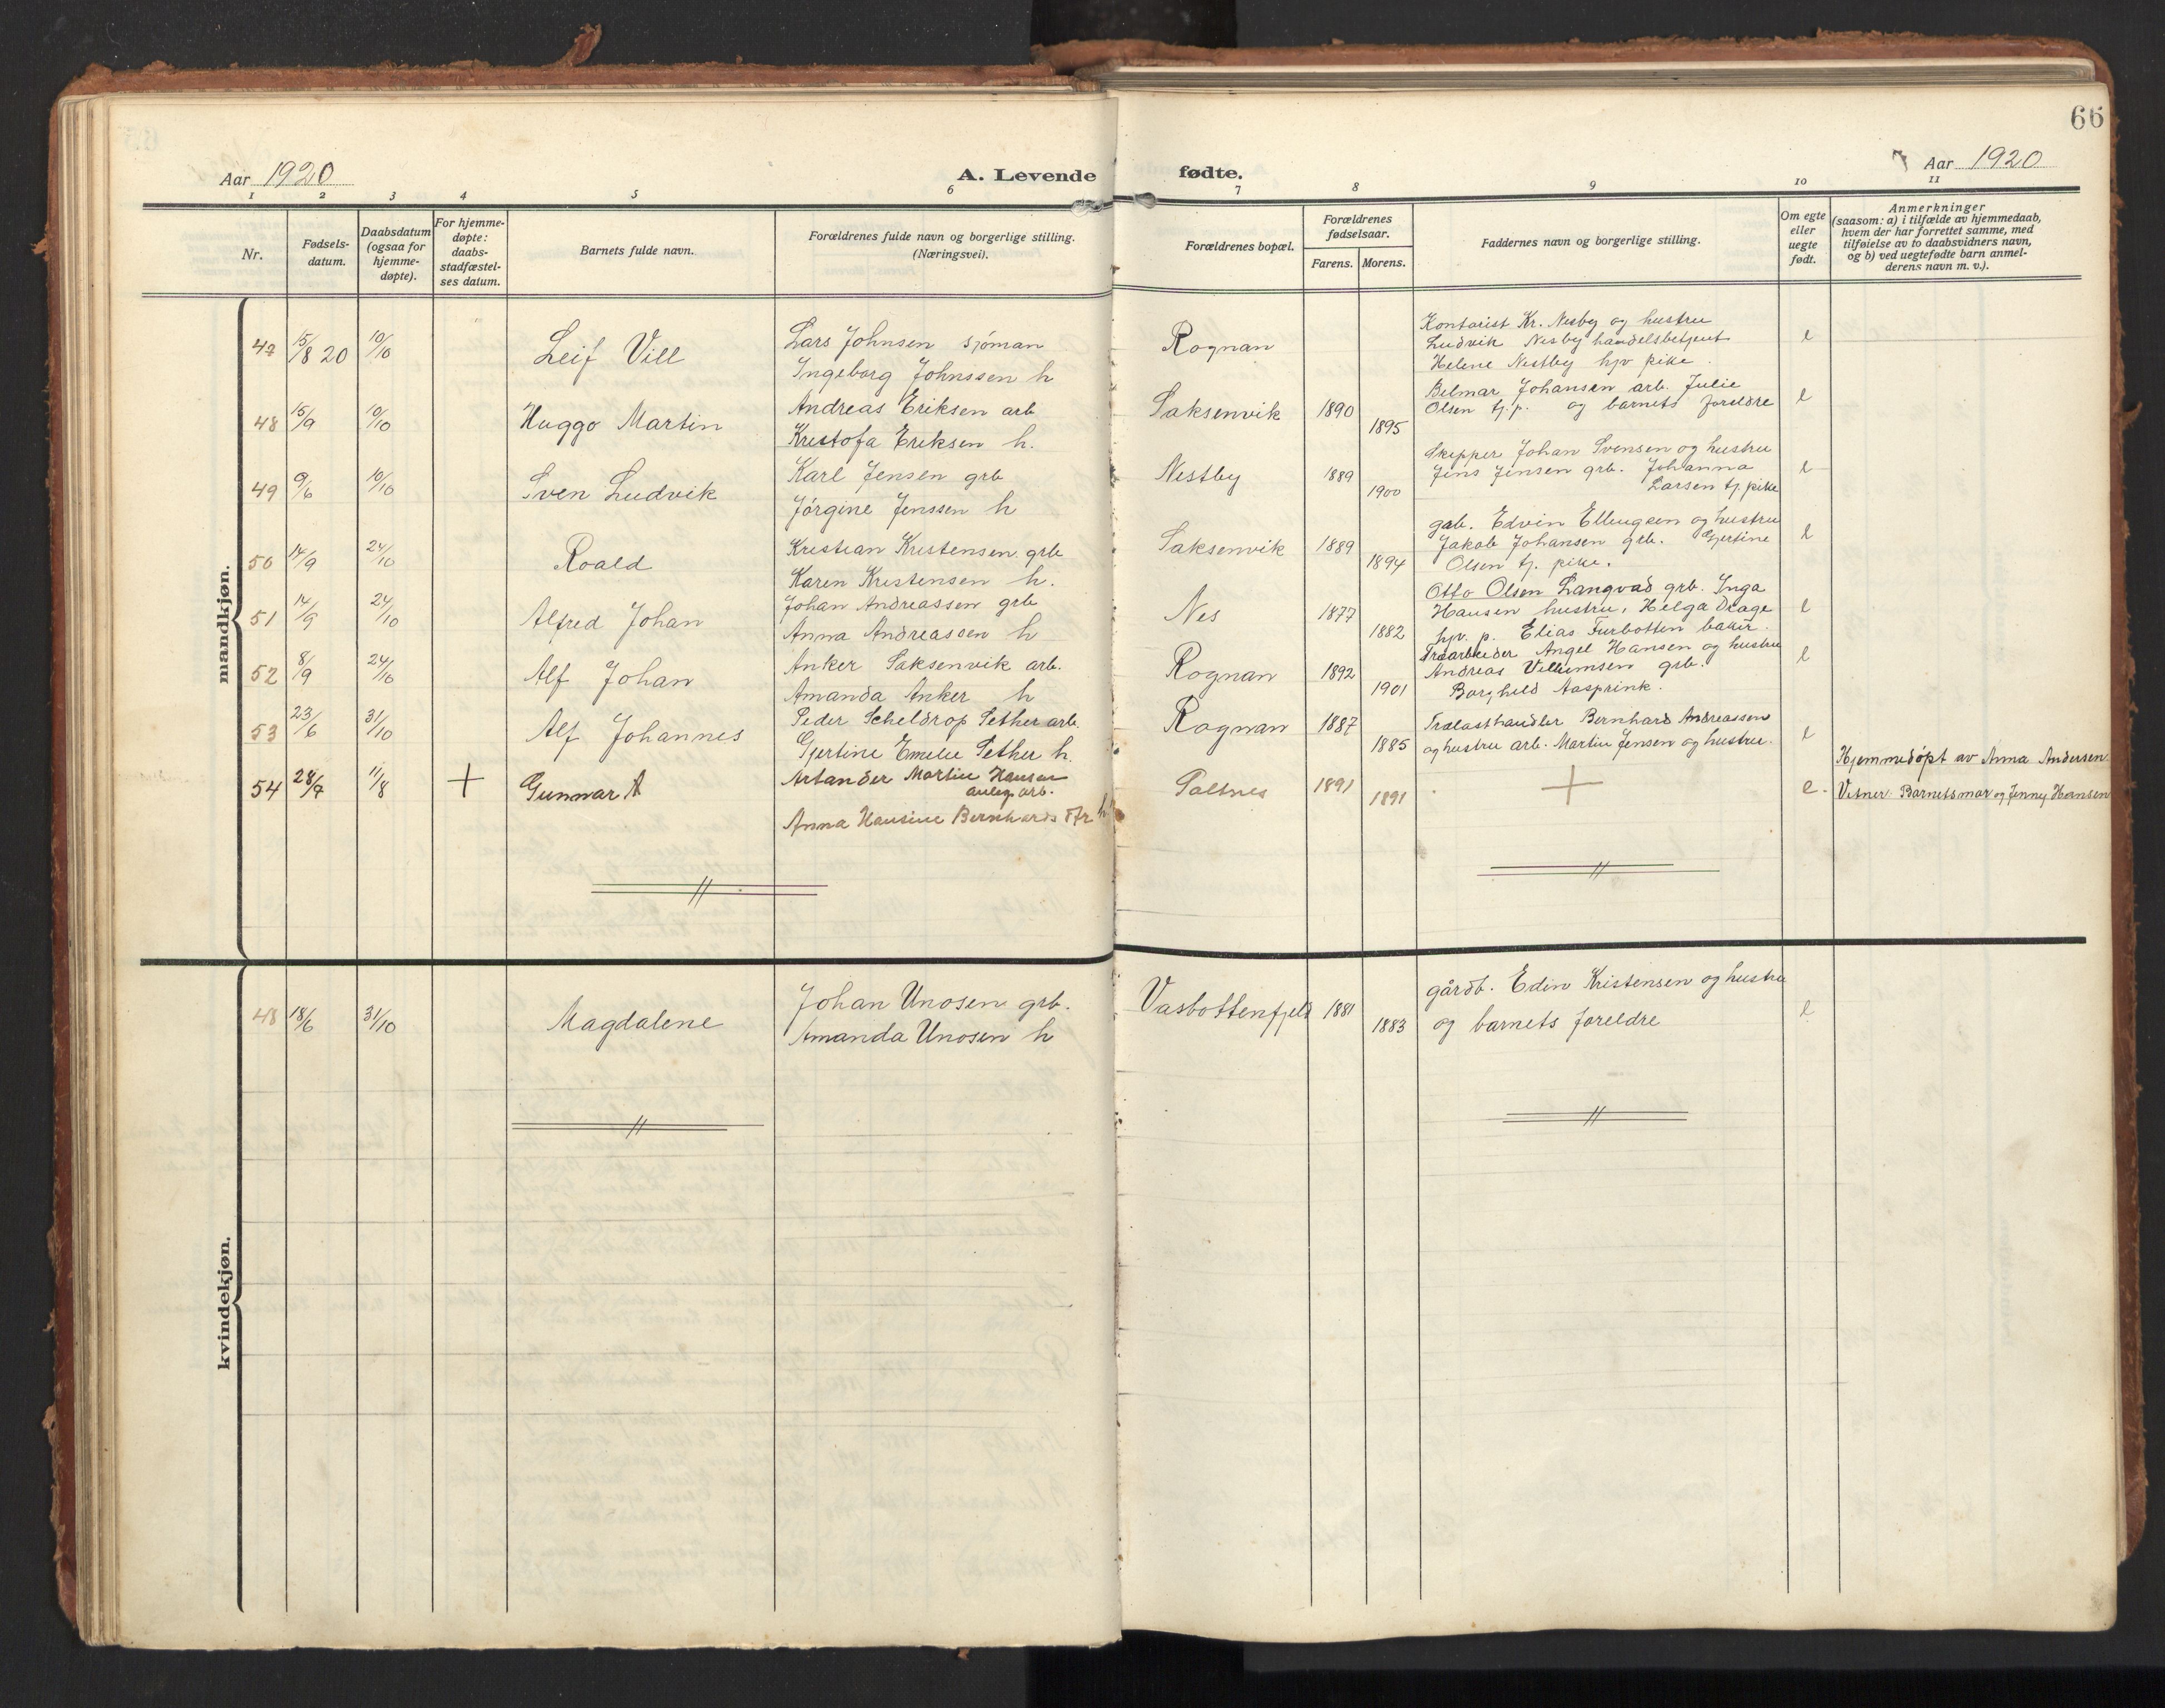 66
Aar 1920
A. Levende fødte.
Aar 1920
1 2 3 4 5 6 7 8 9 10 11
Nr.
Fødsels-
datum.
Daabsdatum
(ogsaa for
hjemme-
døpte).
For hjemme-
døpte:
daabs-
stadfæstel-
ses datum.
Barnets fulde navn.
Forældrenes fulde navn og borgerlige stilling.
(Næringsvei).
Forældrenes bopæl.
Forældrenes
fødselsaar.
Farens. Morens.
Faddernes navn og borgerlige stilling.
Om egte
eller
uegte
født.
Anmerkninger
(saasom: a) i tilfælde av hjemmedaab,
hvem der har forrettet samme, med
tilføielse av to daabsvidners navn,
og b) ved uegtefødte barn anmel-
derens navn m. v.).
mandkjøn.
47 15/8 20 10/10 Leif Vill
Lars Johnsen sjöman
Ingeborg Johnssen h
Rognan
Kontorist Kr. Nesby og hustru
Ludvik Nesby handelsbetjent
Helene Nestby hjv pike.
e
48 15/9 10/10 Huggo Martin
Andreas Eriksen arb
Kristofa Eriksen h.
Saksenvik 1890 1895
Belmar Johansen arb. Julie
Olsen tj. p. og barnets foreldre
e
49 9/6 10/10 Sven Ludvik
Karl Jensen grb
Jörgine Jenssen h
Nestby 1889 1900
Skipper Johan Svensen og hustru
Jens Jensen grb. Johanna
Larsen tj. pike
e
50 14/9 24/10 Roald
Kristian Kristensen grb
Karen Kristensen h.
Saksenvik 1889 1894
gab. Edvin Ellingsen og hustru
Jakob Johansen grb. Gjertine
Olsen tj. pike.
e
51 14/9 24/10 Alfred Johan
Johan Andreassen grb
Anna Andreassen h
Nes 1877 1882
Otto Olsen Langvad grb. Inga
Hansen hustru, Helga Drage
hjv. p. Elias Furbotten baker.
e
52 8/9 24/10 Alf Johan
Anker Saksenvik arb.
Amanda Anker h
Rognan 1892 1901
Træarbeider Angel Hansen og hustru
Andreas Vilhemsen grb.
Borghild Aasprink.
e
53 23/6 31/10 Alf Johannes
Peder Scheldrop Sether arb.
Gjertine Emelie Sether h.
Rognan 1887 1885
Trælasthandler Bernhard Andreassen
og hustru arb. Martin Jensen og hustru.
e
54 28/7 11/8 + Gunnar A
Artander Martin Hansen
anlegsarb.
Anna Hansine Bernhards dtr h
Saltnes 1891 1891
+
e.
Hjemmedöpt av Anna Andersen
Vitner: Barnets mor og Jenny Hansen
kvindekjøn.
48 18/6 31/10 Magdalene
Johan Unosen grb.
Amanda Unosen h
Vasbottenfjeld 1881 1883
gårdb. Edin Kristensen og hustru
og barnets foreldre
e